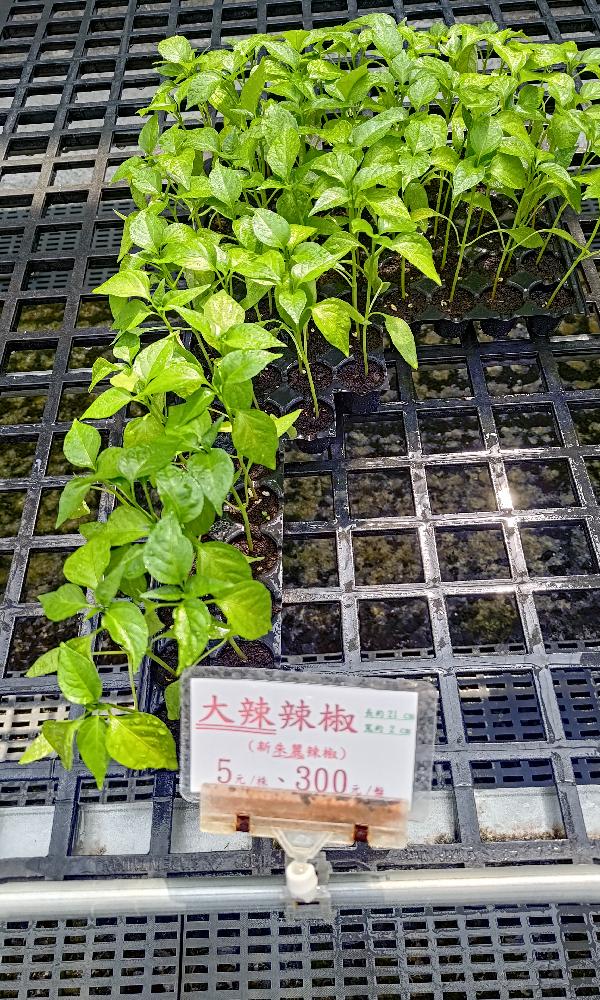 大辣辣椒 長約21cm
寬約2cm
(新朱麗辣椒)
5元/株、300元/盤